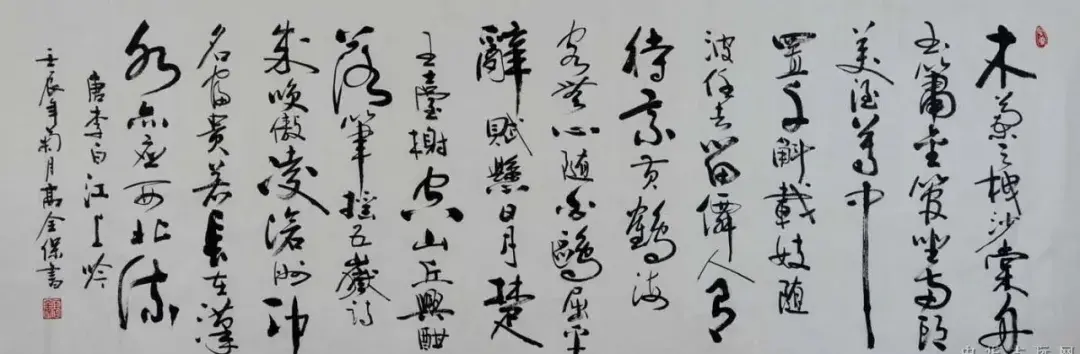 木蘭之枻沙棠舟
玉簫金管坐两頭
美酒尊中
置千斛載妓随
波任去留僊人有
待乘黄鶴海
客無心随白鷗屈平
辭賦懸日月楚
王臺榭空山丘興酣
落筆摇五嶽詩
成咲傲凌滄洲功
名富貴若長在漢
水亦應西北流
唐李白江上吟
壬辰年菊月高全保書